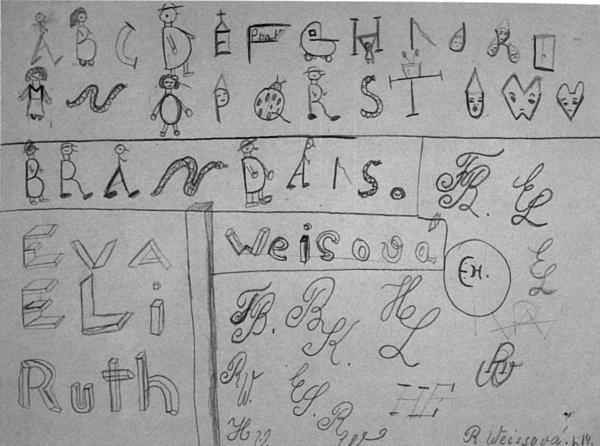 A B C D E F G H I J K L
M N O P Q R S T U W V
BRANDAIS.
FB. EL
EL
Eva
ELi
Ruth
Weisová
EH.
FB. BK. HL
RW. ES. RW HE
RW
R. Weissová.